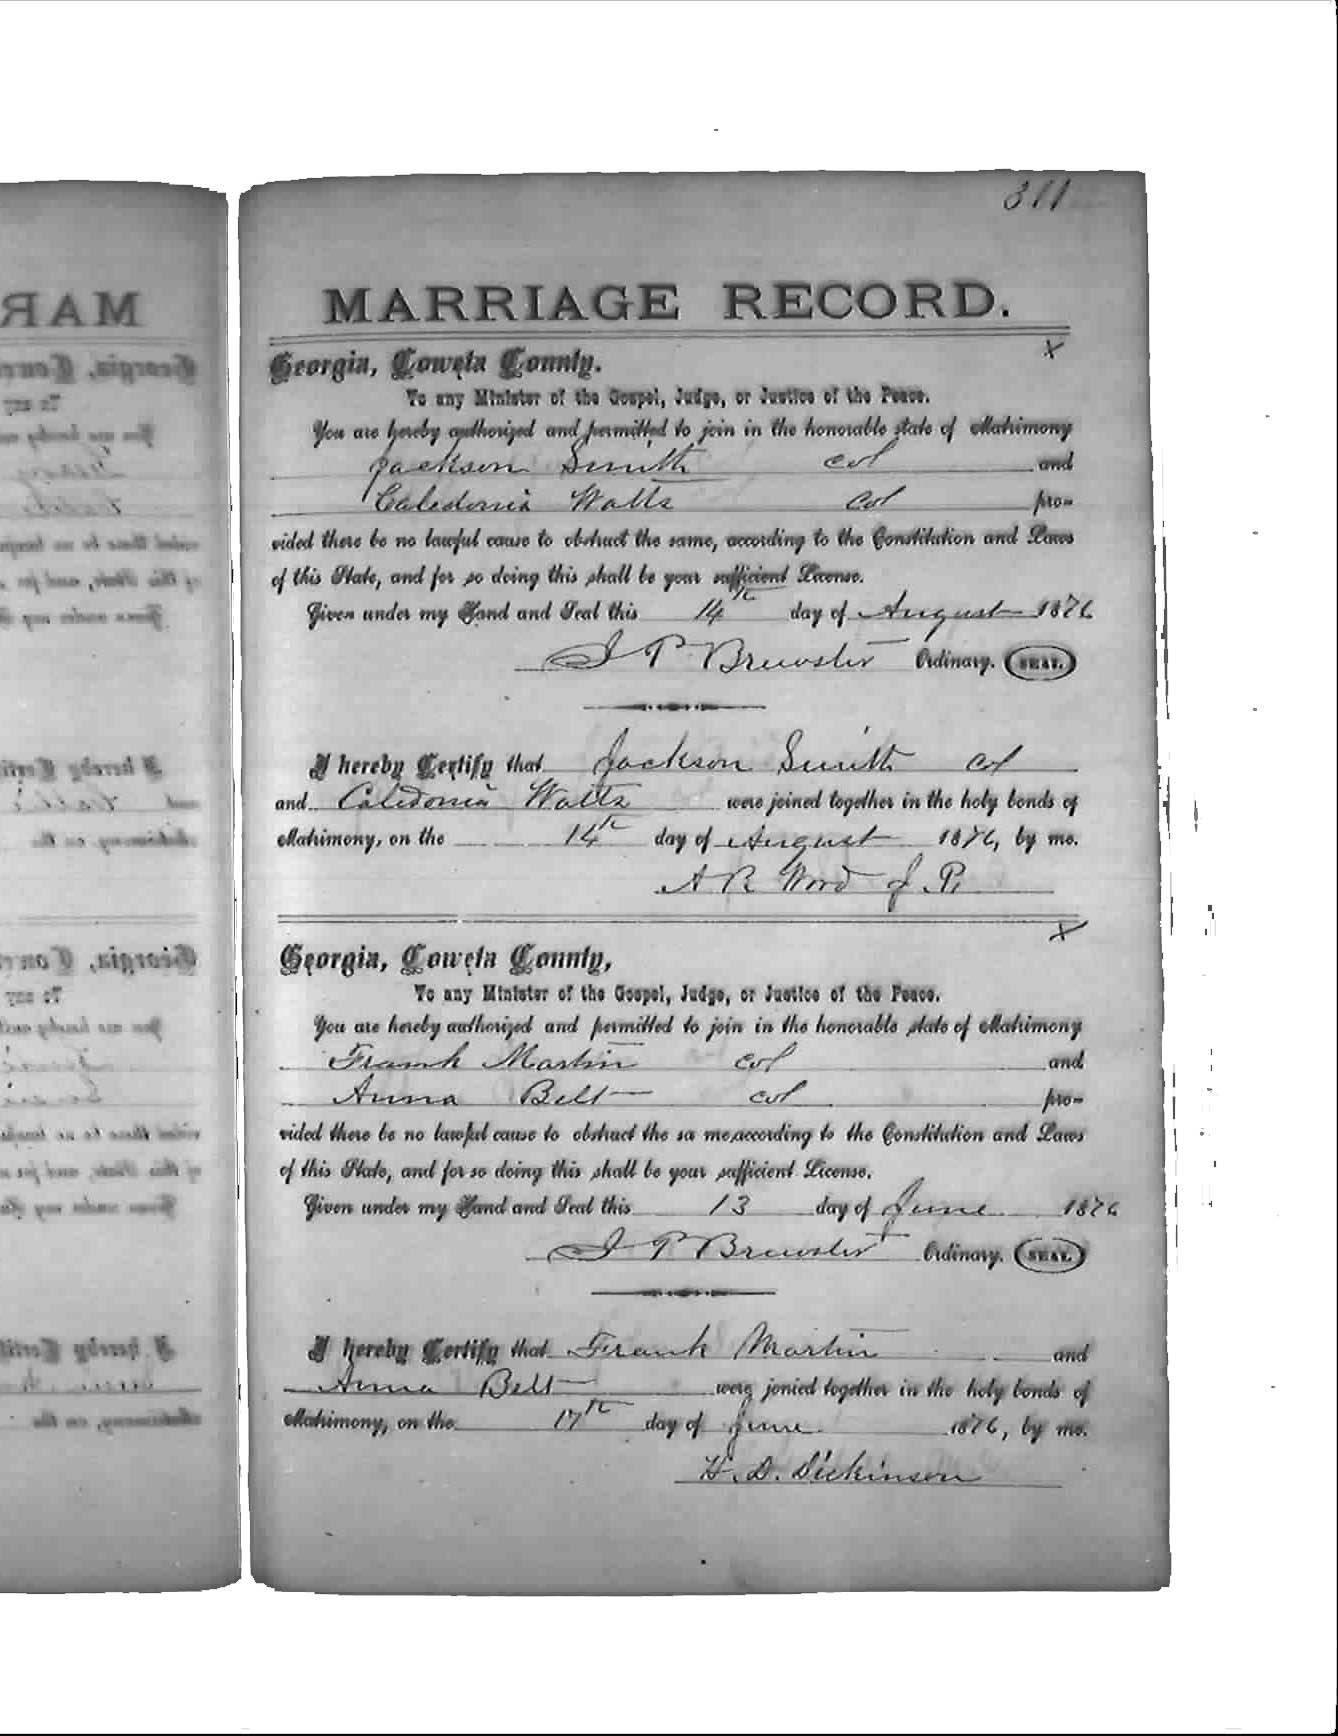 311
MARRIAGE RECORD.
x
Georgia, Coweta County.
To any Minister of the Gospel, Judge, or Justice of the Peace.
You are hereby authorized and permitted to join in the honorable state of Matrimony
Jackson Smith col and
Caledonia Watts col pro-
vided there be no lawful cause to obstruct the same, according to the Constitution and Laws
of this State, and for so doing this shall be your sufficient License.
Given under my Hand and Seal this 14th day of August 1876
J P Brewster Ordinary. SEAL.
I hereby Certify that Jackson Smith col
and Caledonia Watts were joined together in the holy bonds of
Matrimony, on the 14th day of August 1876, by me.
A R Word J. P.
x
Georgia, Coweta County,
To any Minister of the Gospel, Judge, or Justice of the Peace.
You are hereby authorized and permitted to join in the honorable state of Matrimony
Frank Martin col and
Anna Belt col pro-
vided there be no lawful cause to obstruct the sa me,according to the Constitution and Laws
of this State, and for so doing this shall be your sufficient License.
Given under my Hand and Seal this 13 day of June 1876
J P Brewster Ordinary. SEAL.
I hereby Certify that Frank Martin and
Anna Belt were jonied together in the holy bonds of
Matrimony, on the 17th day of June 1876, by me.
H. D. Dickinson